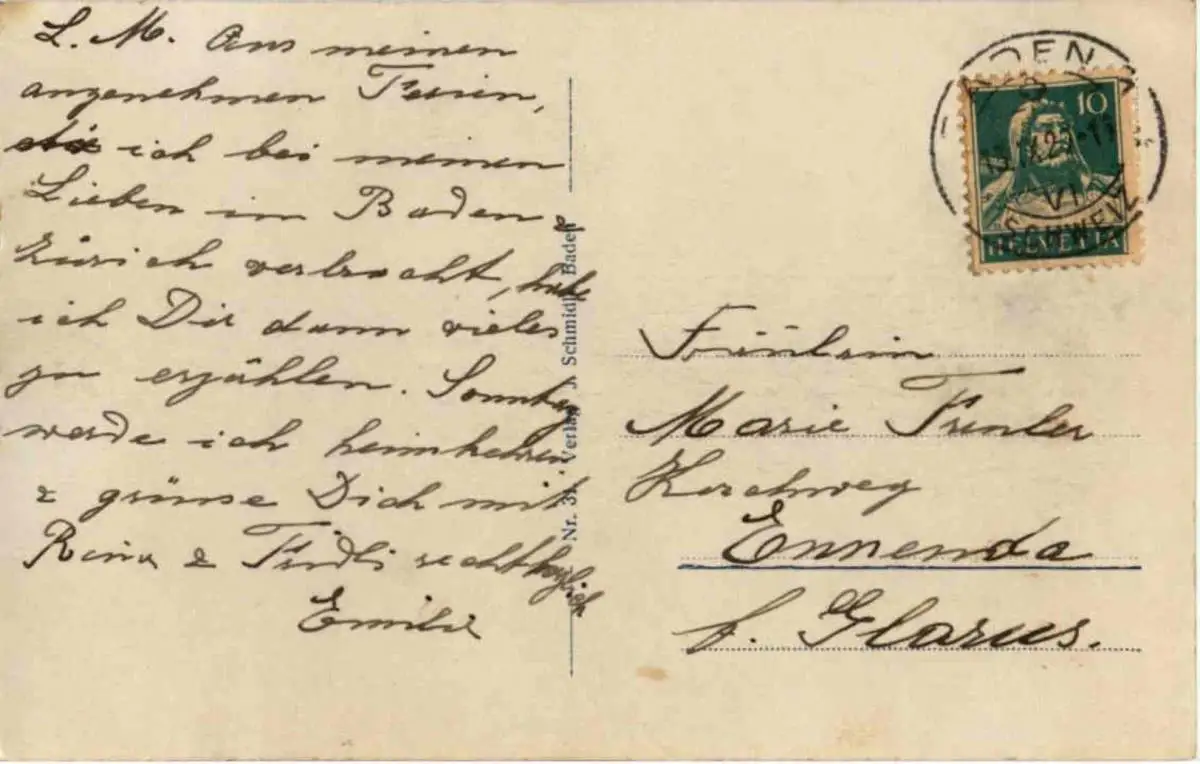 L. M. Aus meinen
angenehmen Ferien,
die ich bei meinen
Lieben in Baden &
Zürich verbracht, habe
ich Dir dann vieles
zu erzählen. Sonntag
werde ich heimkehren
& grüsse Dich mit
Rina & Fridli recht herzlich
Emilie
Nr. 31 · Verlag J. Schmidli, Baden
BADEN
SCHWEIZ
10
HELVETIA
Fräulein
Marie
Ennenda
b. Glarus.